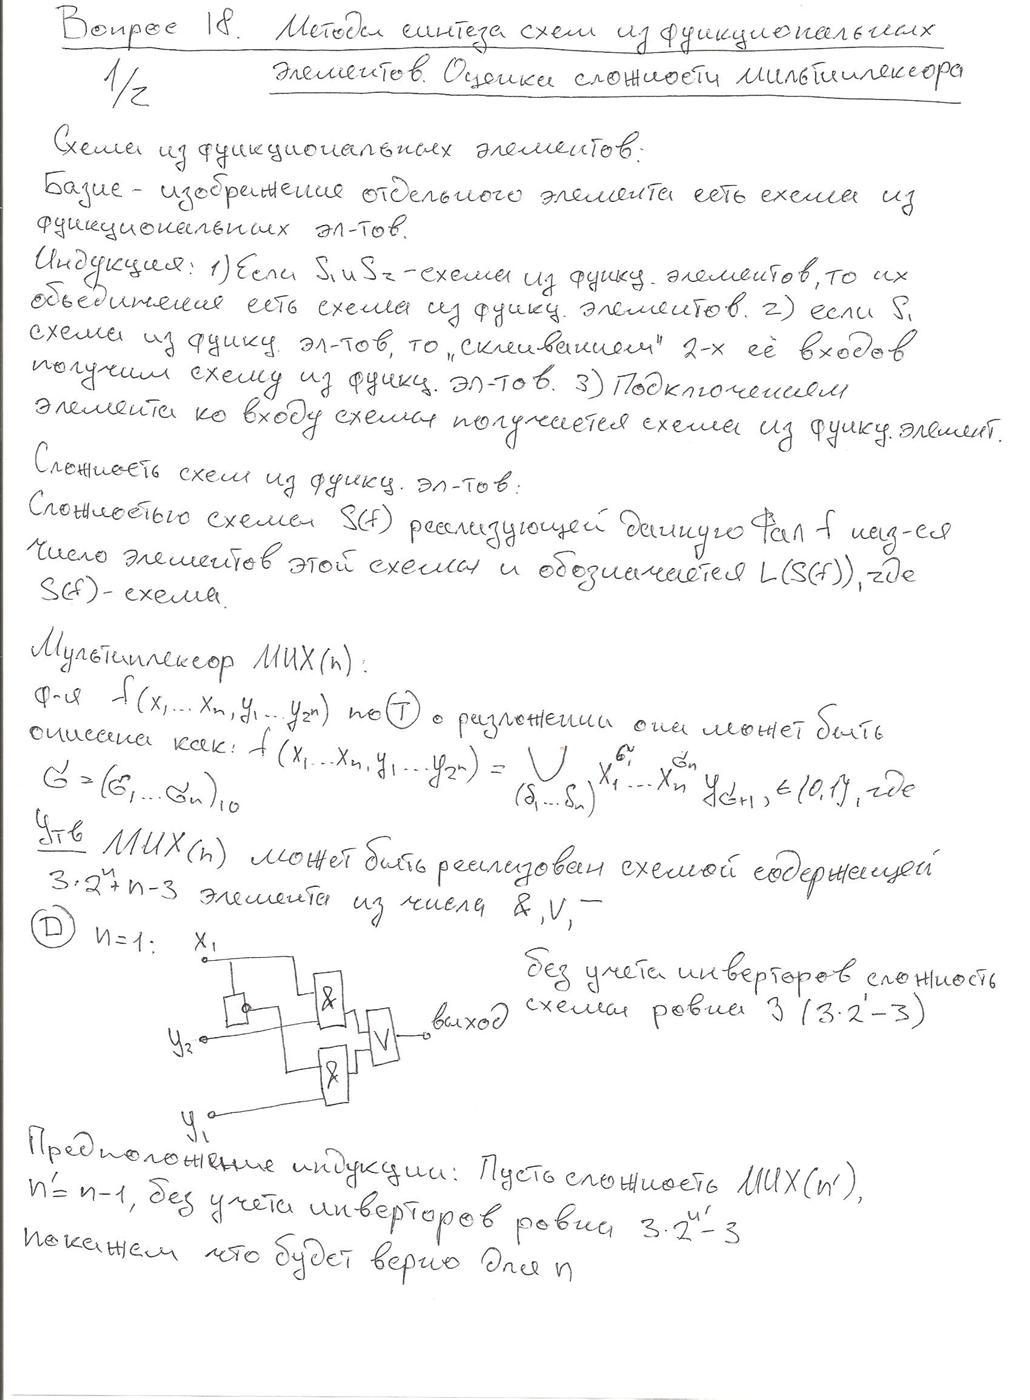 Вопрос 18. Методы синтеза схем из функциональных
1/2 элементов. Оценка сложности мультиплексора
Схема из функциональных элементов:
Базис - изображение отдельного элемента есть схема из
функциональных эл-тов.
Индукция: 1) Если S₁ и S₂ - схема из функц. элементов, то их
объединение есть схема из функц. элементов. 2) если S₁
схема из функц. эл-тов, то „склеиванием" 2-х её входов
получим схему из функц. эл-тов. 3) Подключением
элемента ко входу схемы получается схема из функц. элемент.
Сложность схем из функц. эл-тов:
Сложностью схемы S(f) реализующей данную Фал f наз-ся
число элементов этой схемы и обозначается L(S(f)), где
S(f) - схема.
Мультиплексор МИХ(n):
ф-я f(x₁...xₙ, y₁...y₂ⁿ) по Ⓣ о разложении она может быть
описана как: f(x₁...xₙ, y₁...y₂ⁿ) = ⋁(δ₁...δₙ) x₁^σ₁...xₙ^σₙ y_σ+1, ∈{0,1}, где
σ = (σ₁...σₙ)₁₀
Утв МИХ(n) может быть реализован схемой содержащей
3·2ⁿ+n-3 элемента из числа &, V, ―
Ⓓ n=1: x₁
без учета инверторов сложность
схемы ровна 3 (3·2¹-3)
&
y₂
V
выход
&
y₁
Предположение индукции: Пусть сложность МИХ(n'),
n' = n-1, без учета инверторов ровна 3·2ⁿ'-3
покажем что будет верно для n